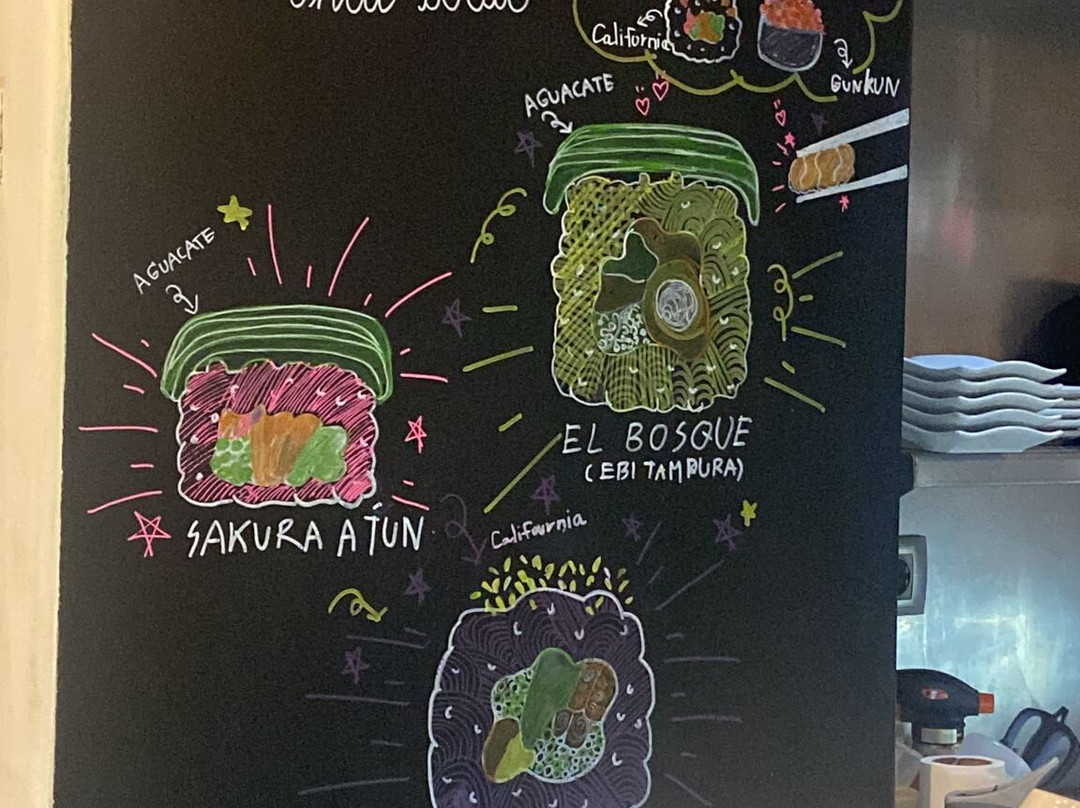 California
GUNKUN
AGUACATE
AGUACATE
EL BOSQUE
(EBI TAMPURA)
SAKURA ATÚN
Califournia